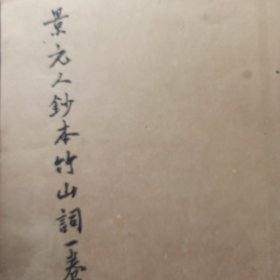 景元人鈔本竹山詞一卷